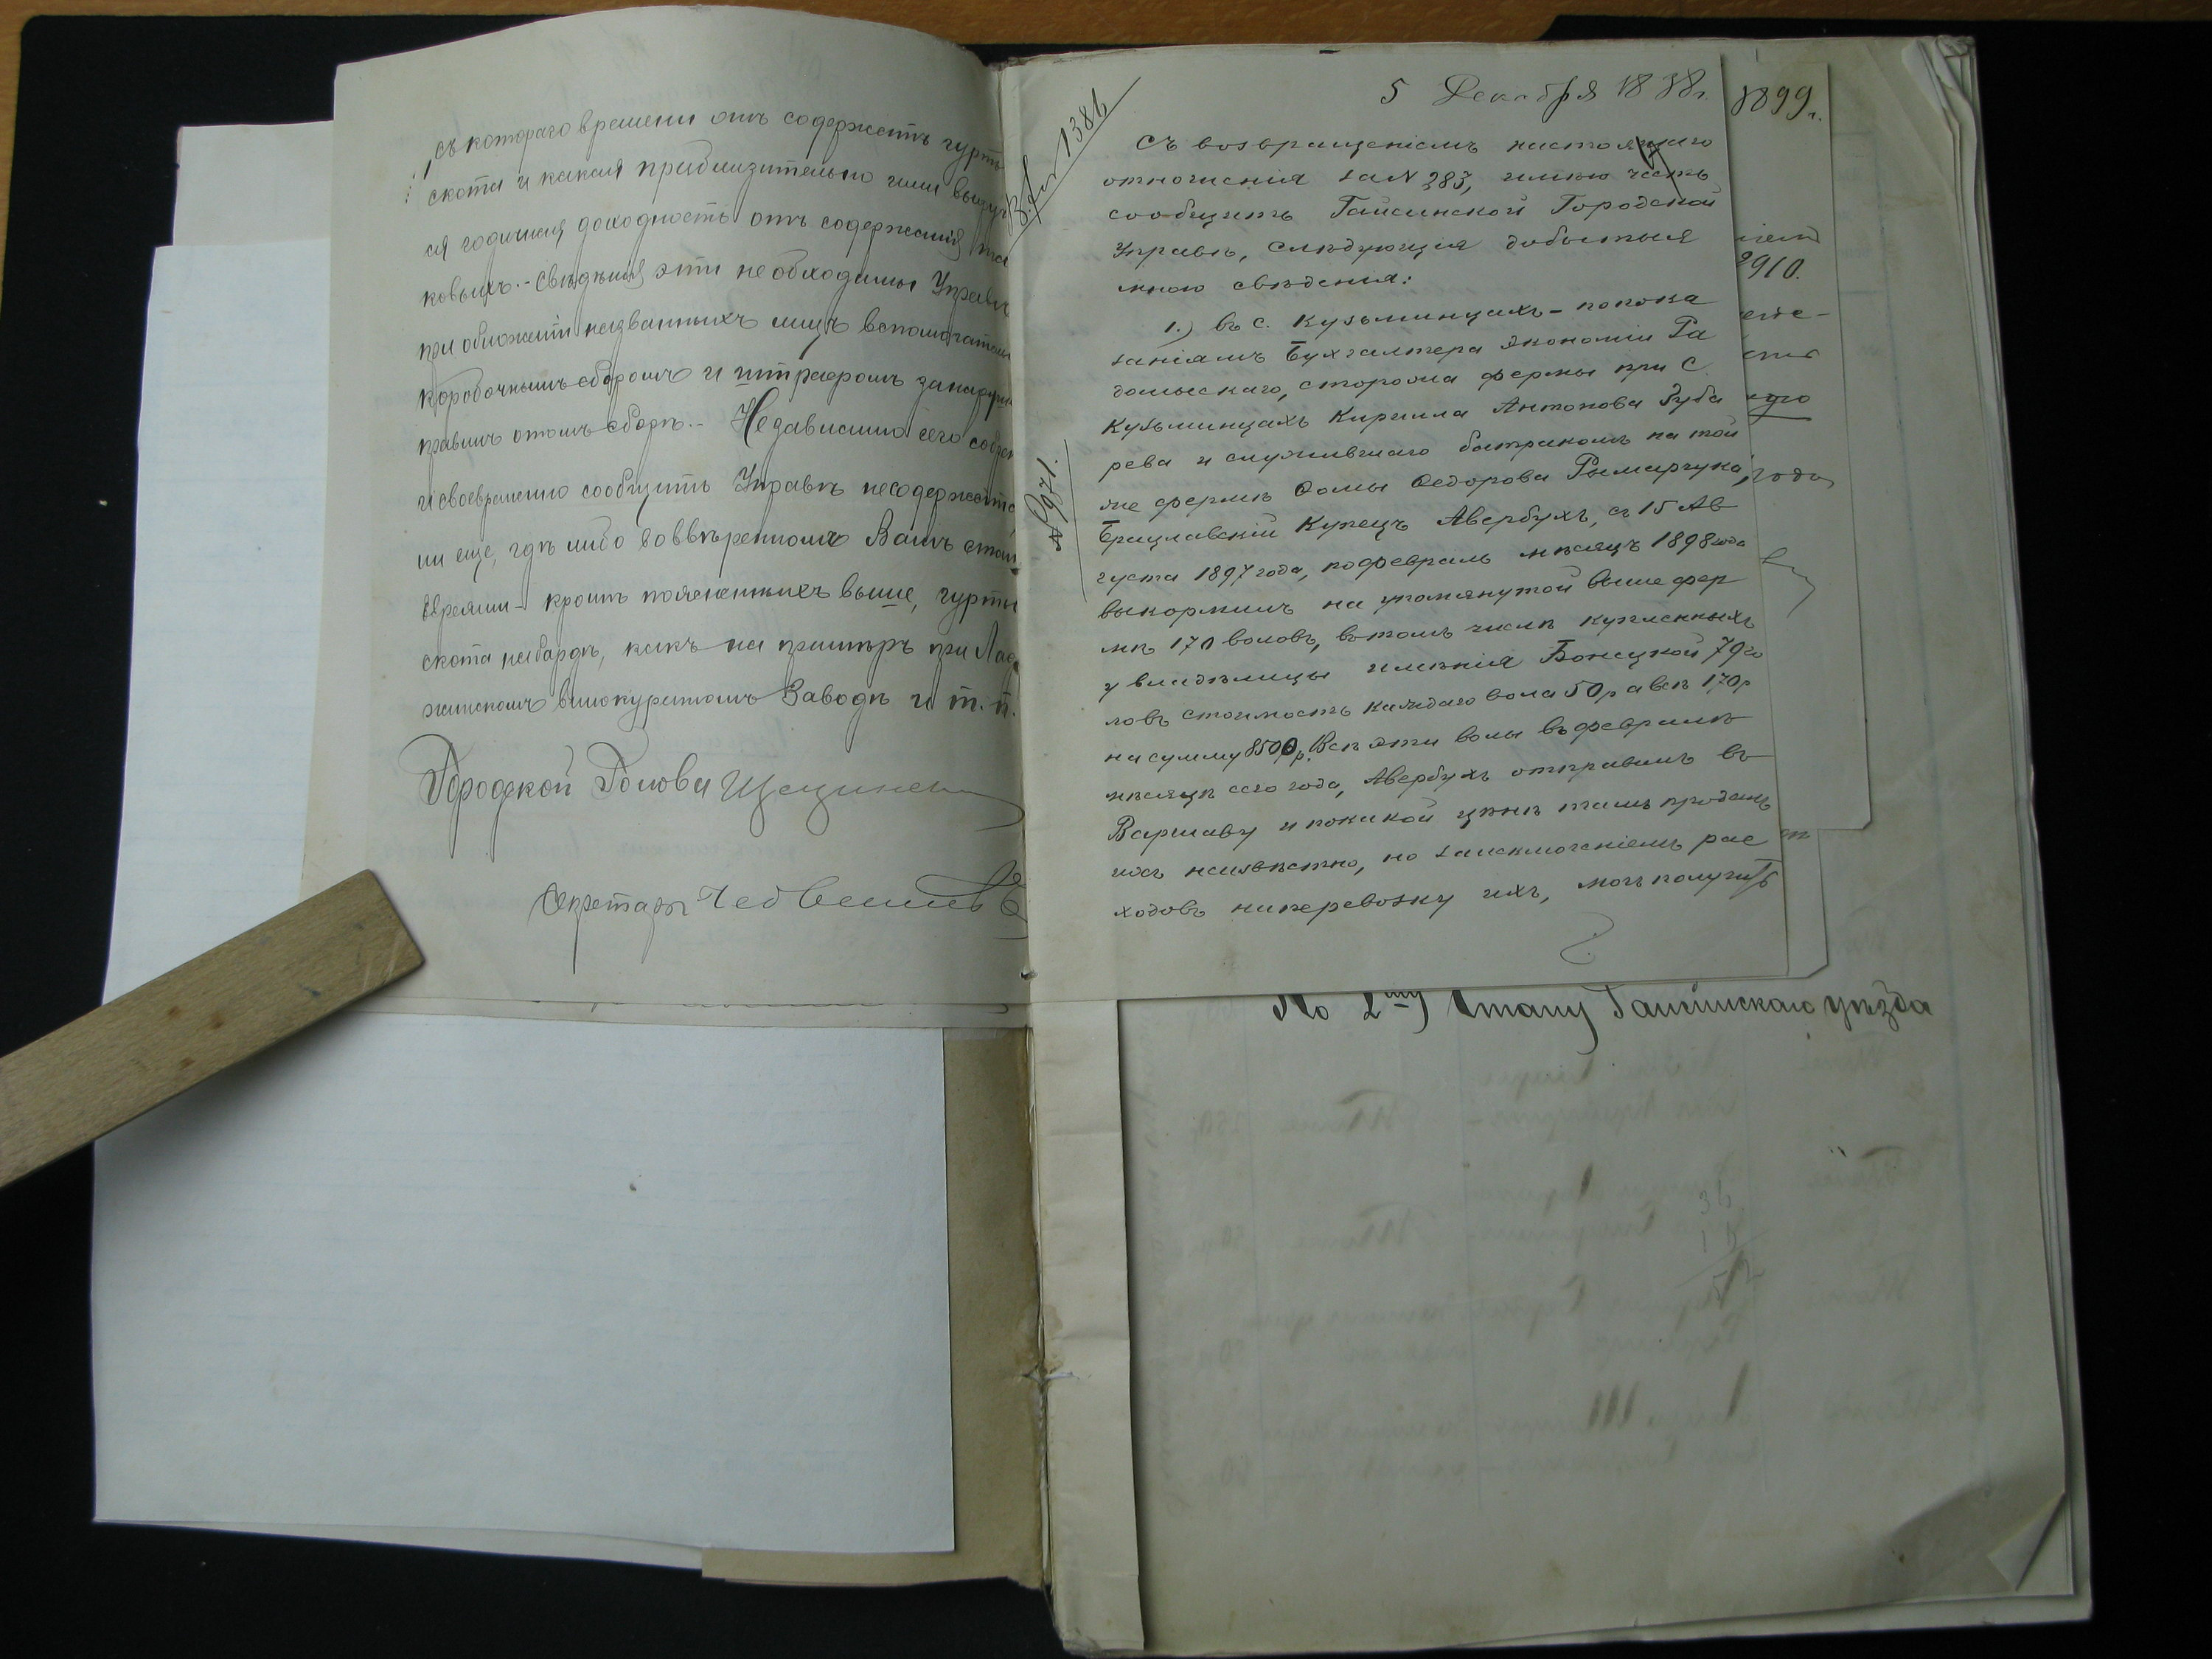 съ котораго времени онъ содержитъ гурты
скота и какая приблизительно ими выруч
ая годичная доходность отъ содержанія та
ковыхъ. - Свѣдѣнія эти необходимы Управѣ
при обложеніи названныхъ лицъ вспомогательн
коробочнымъ сборомъ и штрафомъ за наруше
правилъ о томъ сборѣ. - Независимо сего
и своевременно сообщить Управѣ не содержатся
ли еще, гдѣ либо во ввѣренномъ Вамъ станѣ
Евреями - кромѣ поясненныхъ выше, гурты
скота на бардѣ, какъ на примѣръ при Лады
жинскомъ винокуренномъ Заводѣ и т. п.
Городской Голова
Секретарь
1386
№ 2971.
5 Декабря 1898 г.
Съ возвращеніемъ настоящаго
отношенія за N 283, имѣю честь
сообщить Гайсинской Городской
Управѣ, слѣдующія добытыя
мною свѣденія:
1.) въ с. Кузьминцахъ - по пока
заніямъ Бухгалтера экономіи Ра
домыскаго, сторожа фермы при С.
Кузьминцахъ Кирилла Антонова Зуба
рева и служившаго батракомъ на той
же фермѣ Ѳомы Ѳедорова Рымарчука,
Брацлавскій Купецъ Авербухъ, съ 15 Ав
густа 1897 года, по февраль мѣсяцъ 1898 года
выкормилъ на упомянутой выше фер
мѣ 170 воловъ, въ томъ числѣ купленныхъ
у владѣлицы имѣнія Бонецкой 79 го
ловъ стоимость каждаго вола 50 р а всѣ 170 р
на сумму 8500 р. Всѣ эти волы въ февралѣ
мѣсяцѣ сего года, Авербухъ отправилъ въ
Варшаву и по какой цѣнѣ тамъ продалъ
ихъ неизвѣстно, но за исключеніемъ рас
ходовъ на перевозку ихъ, могъ получить
1899 г.
2910.
года
По 2му Стану Гайсинскаго уѣзда
36
16
52